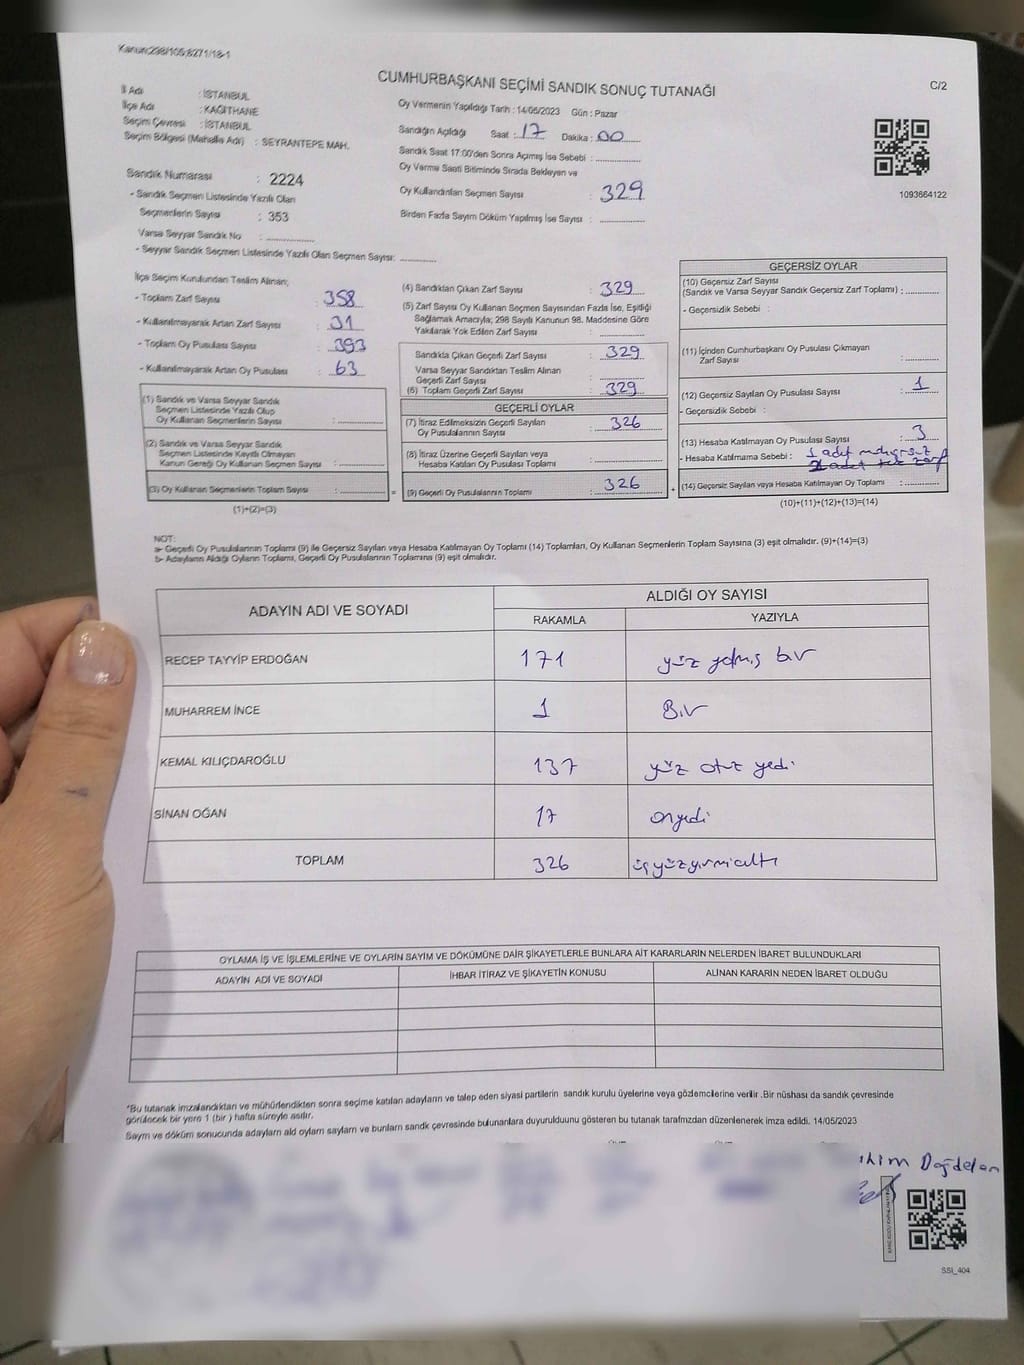 Kanun:298/105;6271/18-1
CUMHURBAŞKANI SEÇİMİ SANDIK SONUÇ TUTANAĞI
C/2
İl Adı : İSTANBUL
İlçe Adı : KAĞITHANE
Seçim Çevresi : İSTANBUL
Seçim Bölgesi (Mahalle Adı) : SEYRANTEPE MAH.
Oy Vermenin Yapıldığı Tarih : 14/05/2023 Gün : Pazar
Sandığın Açıldığı Saat : 17 Dakika : 00
Sandık Saat 17:00'den Sonra Açımış İse Sebebi :
Oy Verme Saati Bitiminde Sırada Bekleyen ve
Oy Kullandırılan Seçmen Sayısı : 329
Birden Fazla Sayım Döküm Yapılmış İse Sayısı :
1093664122
Sandık Numarası : 2224
- Sandık Seçmen Listesinde Yazılı Olan
Seçmenlerin Sayısı : 353
Varsa Seyyar Sandık No :
- Seyyar Sandık Seçmen Listesinde Yazılı Olan Seçmen Sayısı:
İlçe Seçim Kurulundan Teslim Alınan;
- Toplam Zarf Sayısı : 358
- Kullanılmayarak Artan Zarf Sayısı : 31
- Toplam Oy Pusulası Sayısı : 393
- Kullanılmayarak Artan Oy Pusulası : 63
(1) Sandık ve Varsa Seyyar Sandık
Seçmen Listesinde Yazılı Olup
Oy Kullanan Seçmenlerin Sayısı :
(2) Sandık ve Varsa Seyyar Sandık
Seçmen Listesinde Kayıtlı Olmayan
Kanun Gereği Oy Kullanan Seçmen Sayısı :
(3) Oy Kullanan Seçmenlerin Toplam Sayısı :
(1)+(2)=(3)
(4) Sandıktan Çıkan Zarf Sayısı : 329
(5) Zarf Sayısı Oy Kullanan Seçmen Sayısından Fazla İse, Eşitliği
Sağlamak Amacıyla; 298 Sayılı Kanunun 98. Maddesine Göre
Yakılarak Yok Edilen Zarf Sayısı :
Sandıkta Çıkan Geçerli Zarf Sayısı : 329
Varsa Seyyar Sandıktan Teslim Alınan
Geçerli Zarf Sayısı :
(6) Toplam Geçerli Zarf Sayısı : 329
GEÇERLİ OYLAR
(7) İtiraz Edilmeksizin Geçerli Sayılan
Oy Pusulalarının Sayısı : 326
(8) İtiraz Üzerine Geçerli Sayılan veya
Hesaba Katılan Oy Pusulası Toplamı :
(9) Geçerli Oy Pusulalarının Toplamı : 326
GEÇERSİZ OYLAR
(10) Geçersiz Zarf Sayısı
(Sandık ve Varsa Seyyar Sandık Geçersiz Zarf Toplamı) :
- Geçersizlik Sebebi :
(11) İçinden Cumhurbaşkanı Oy Pusulası Çıkmayan
Zarf Sayısı :
(12) Geçersiz Sayılan Oy Pusulası Sayısı : 1
- Geçersizlik Sebebi :
(13) Hesaba Katılmayan Oy Pusulası Sayısı : 3
- Hesaba Katılmama Sebebi : 1 adet mühürsüz
adet tek zarf
(14) Geçersiz Sayılan veya Hesaba Katılmayan Oy Toplamı :
(10)+(11)+(12)+(13)=(14)
NOT:
a- Geçerli Oy Pusulalarının Toplamı (9) ile Geçersiz Sayılan veya Hesaba Katılmayan Oy Toplamı (14) Toplamları, Oy Kullanan Seçmenlerin Toplam Sayısına (3) eşit olmalıdır. (9)+(14)=(3)
b- Adayların Aldığı Oyların Toplamı, Geçerli Oy Pusulalarının Toplamına (9) eşit olmalıdır.
ADAYIN ADI VE SOYADI
ALDIĞI OY SAYISI
RAKAMLA YAZIYLA
RECEP TAYYİP ERDOĞAN 171 yüz yetmiş bir
MUHARREM İNCE 1 Bir
KEMAL KILIÇDAROĞLU 137 yüz otuz yedi
SİNAN OĞAN 17 onyedi
TOPLAM 326 üçyüzyirmialtı
OYLAMA İŞ VE İŞLEMLERİNE VE OYLARIN SAYIM VE DÖKÜMÜNE DAİR ŞİKAYETLERLE BUNLARA AİT KARARLARIN NELERDEN İBARET BULUNDUKLARI
ADAYIN ADI VE SOYADI İHBAR İTİRAZ VE ŞİKAYETİN KONUSU ALINAN KARARIN NEDEN İBARET OLDUĞU
*Bu tutanak imzalandıktan ve mühürlendikten sonra seçime katılan adayların ve talep eden siyasi partilerin sandık kurulu üyelerine veya gözlemcilerine verilir .Bir nüshası da sandık çevresinde
görülecek bir yere 1 (bir ) hafta süreyle asılır.
Sayım ve döküm sonucunda adayların aldı oyların sayıları ve bunların sandık çevresinde bulunanlara duyurulduunu gösteren bu tutanak tarafımızdan düzenlenerek imza edildi. 14/05/2023
ahim Doğdelen
SSI_404